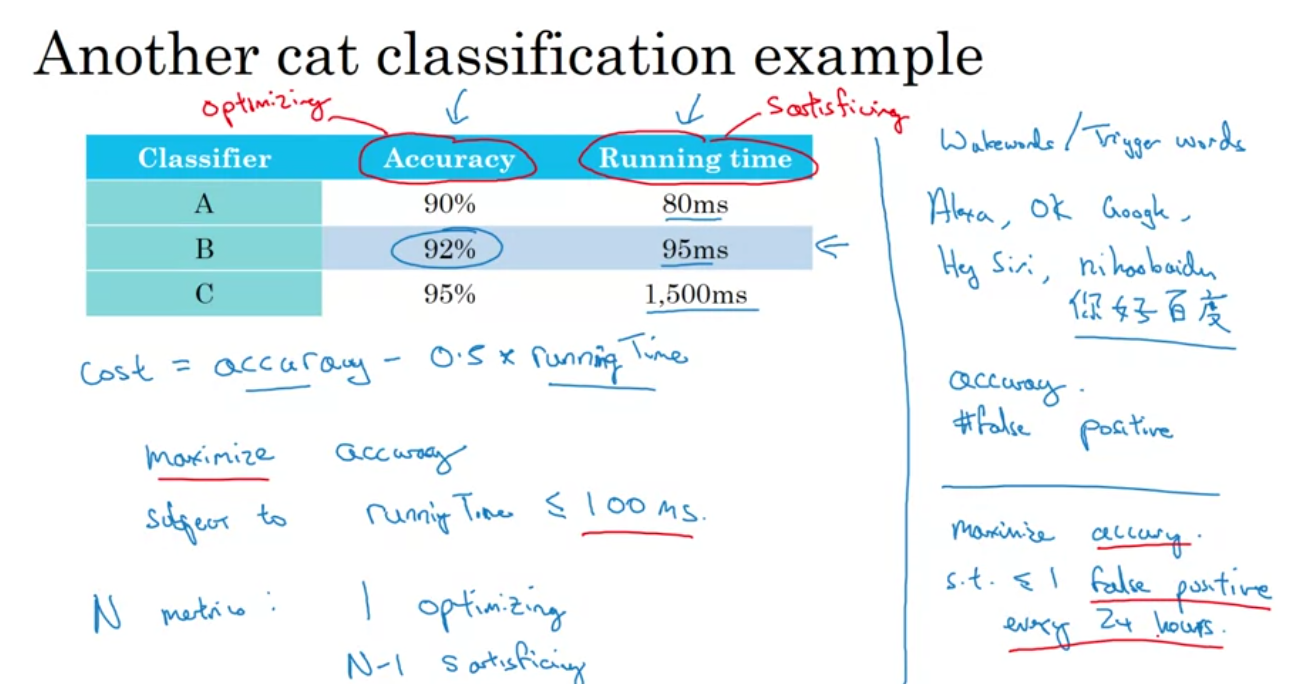 Another cat classification example
optimizing
Satisficing
Classifier Accuracy Running time
A 90% 80ms
B 92% 95ms
C 95% 1,500ms
cost = accuracy - 0.5 x runningTime
maximize accuracy
subject to runningTime ≤ 100 ms.
N metrics: 1 optimizing
N-1 satisficing
Wakewords / Trigger words
Alexa, OK Google,
Hey Siri, nihaobaidu
你好百度
accuracy.
#false positive
maximize accuracy.
s.t. ≤ 1 false positive
every 24 hours.